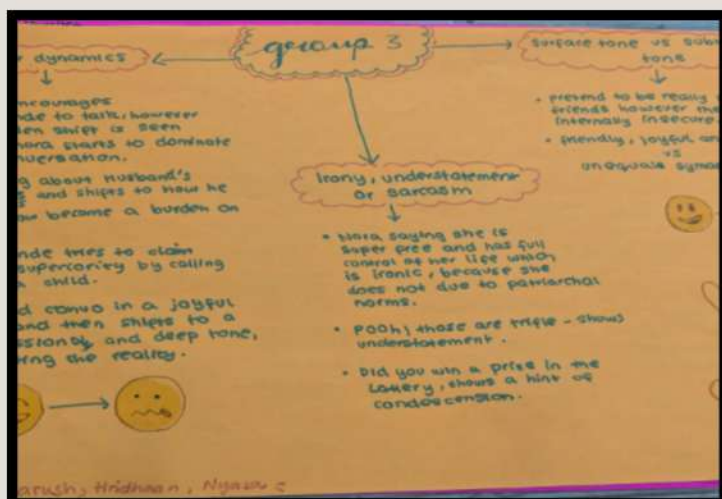 group 3
dynamics
encourages
nde to talk, however
den shift is seen
nora starts to dominate
nversation.
g about Husband's
and shifts to how he
ow become a burden on
nde tries to claim
superiority by calling
child.
d convo in a joyful
and then shifts to a
and deep tone,
ing the reality.
Irony, understatement
or sarcasm
• Nora saying she is
super free and has full
control of her life which
is ironic, because she
does not due to patriarchal
norms.
• Pooh, those are trifle - shows
understatement.
• Did you win a prize in the
Lottery, shows a hint of
condescension.
surface tone vs sub
tone
• pretend to be really
friends however
internally insecure
• friendly, joyful
vs
unequal
arush, Hridhaan, Nyasa